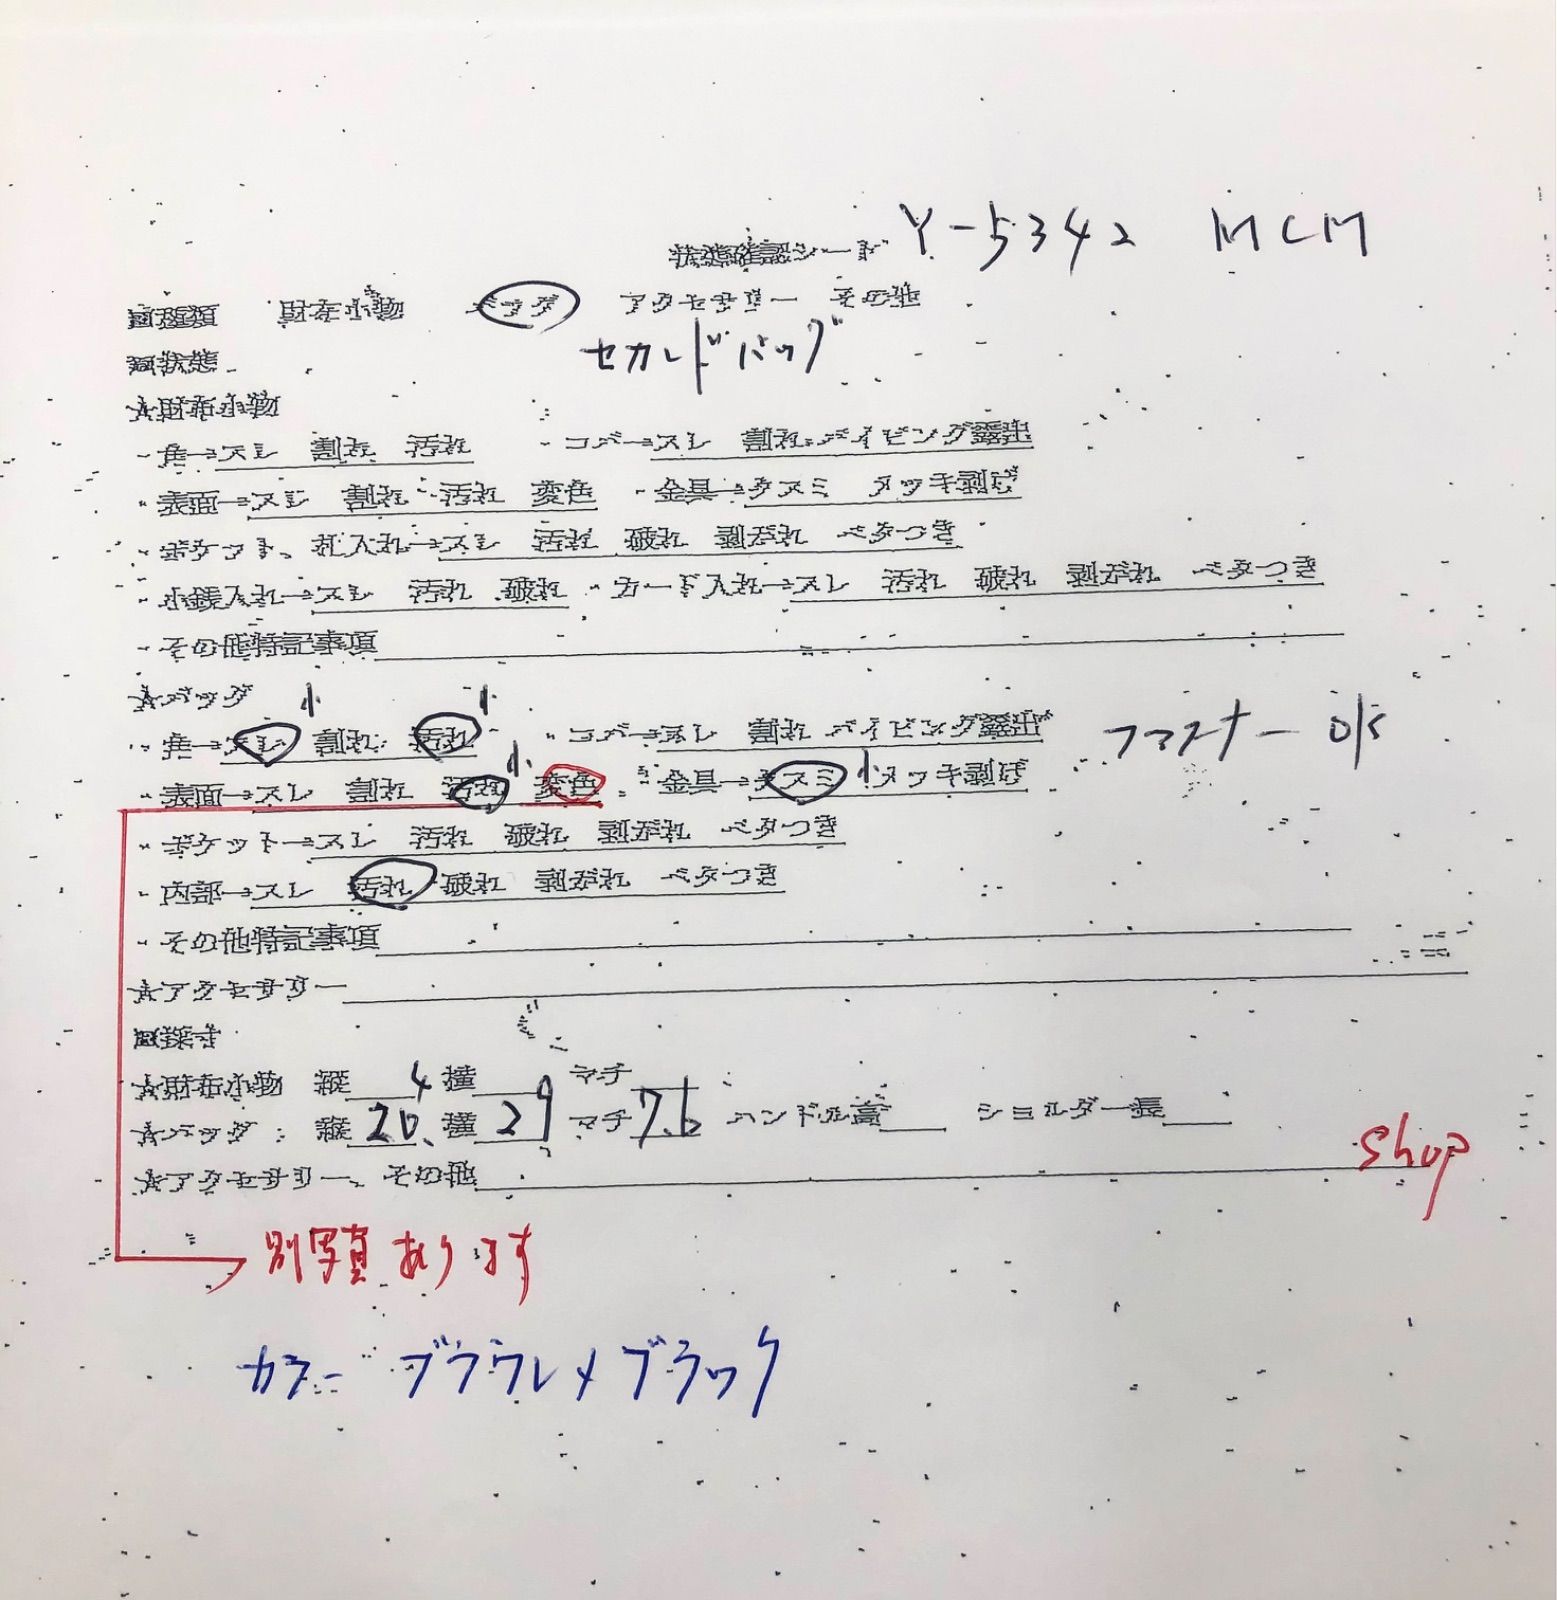 状態確認シート Y-5342 MCM
■種類 財布小物 バッグ アクセサリー その他
セカンドバッグ
■状態
☆財布小物
・角→スレ 割れ 汚れ ・コバ→スレ 割れ パイピング露出
・表面→スレ 割れ 汚れ 変色 ・金具→クスミ メッキ剥げ
・ポケット、札入れ→スレ 汚れ 破れ 剥がれ ベタつき
・小銭入れ→スレ 汚れ 破れ ・カード入れ→スレ 汚れ 破れ 剥がれ ベタつき
・その他特記事項
☆バッグ 小 小
・角→スレ 割れ 汚れ ・コバ→スレ 割れ パイピング露出 ファスナー
・表面→スレ 割れ 汚れ 小 変色 ・金具→クスミ 小 メッキ剥げ
・ポケット→スレ 汚れ 破れ 剥がれ ベタつき
・内部→スレ 汚れ 破れ 剥がれ ベタつき
・その他特記事項
☆アクセサリー
■採寸
☆財布小物 縦 横 マチ
☆バッグ 縦20 横29 マチ7.6 ハンドル高 ショルダー長
shop
☆アクセサリー、その他
別写真あります
カラー ブラウン×ブラック